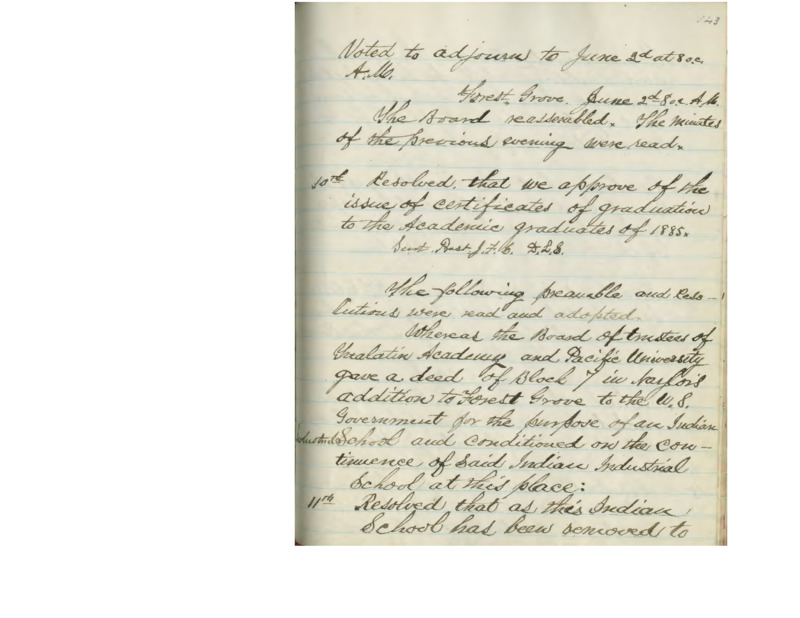 143
Voted to adjourn to June 2d at 8 o.c.
A.M.
Forest Grove. June 2d 8 o.c A.M.
The Board reassembled. The minutes
of the previous evening were read.
10th Resolved, that we approve of the
issue of certificates of graduation
to the Academic graduates of 1885.
J.F.E. D.L.E.
The following preamble and Reso-
lutions were read and adopted.
Whereas the Board of trustees of
Tualatin Academy and Pacific University
gave a deed of Block 7 in Naylor's
addition to Forest Grove to the U.S.
Government for the purpose of an Indian
Industrial School and conditioned on the con-
tinuence of Said Indian Industrial
School at this place:
11th Resolved that as this Indian
School has been removed to